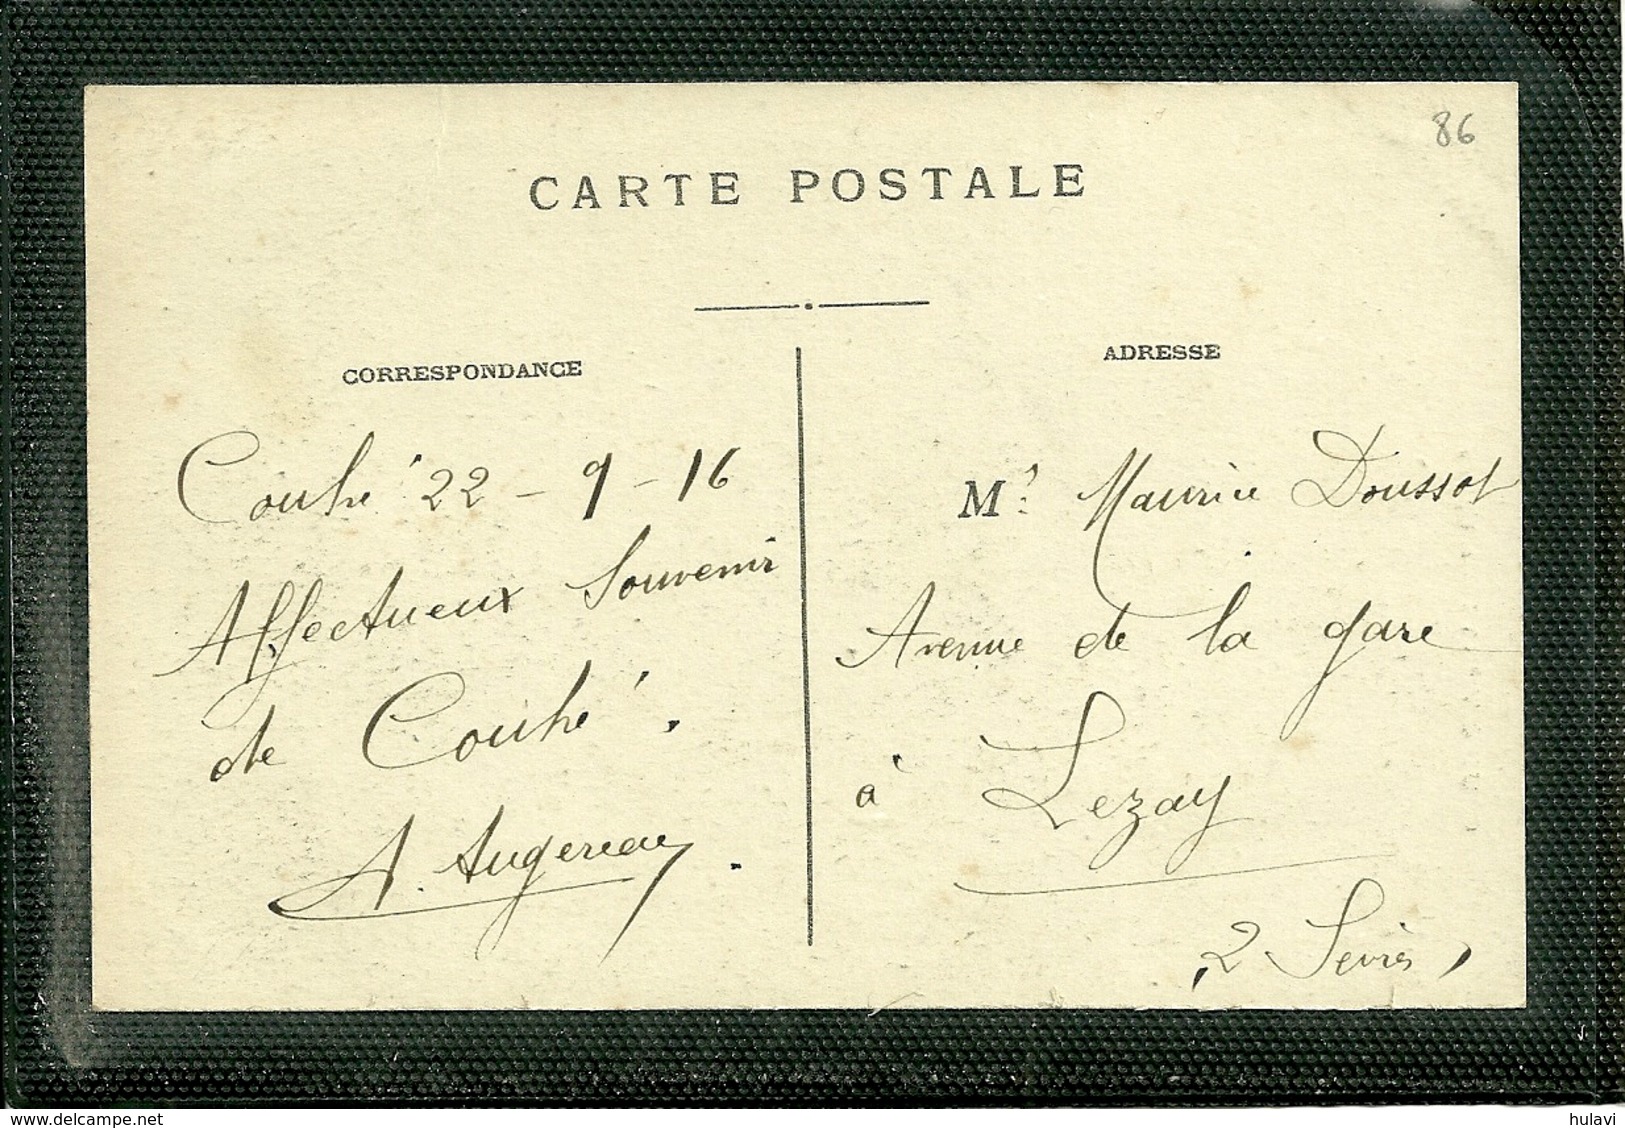 86
CARTE POSTALE
CORRESPONDANCE
Couhé 22 - 9 - 16
Affectueux Souvenir
de Couhé.
A. Augereau.
ADRESSE
Mr Maurice Doussot
Avenue de la gare
à Lezay
2 Sèvres
hulavi